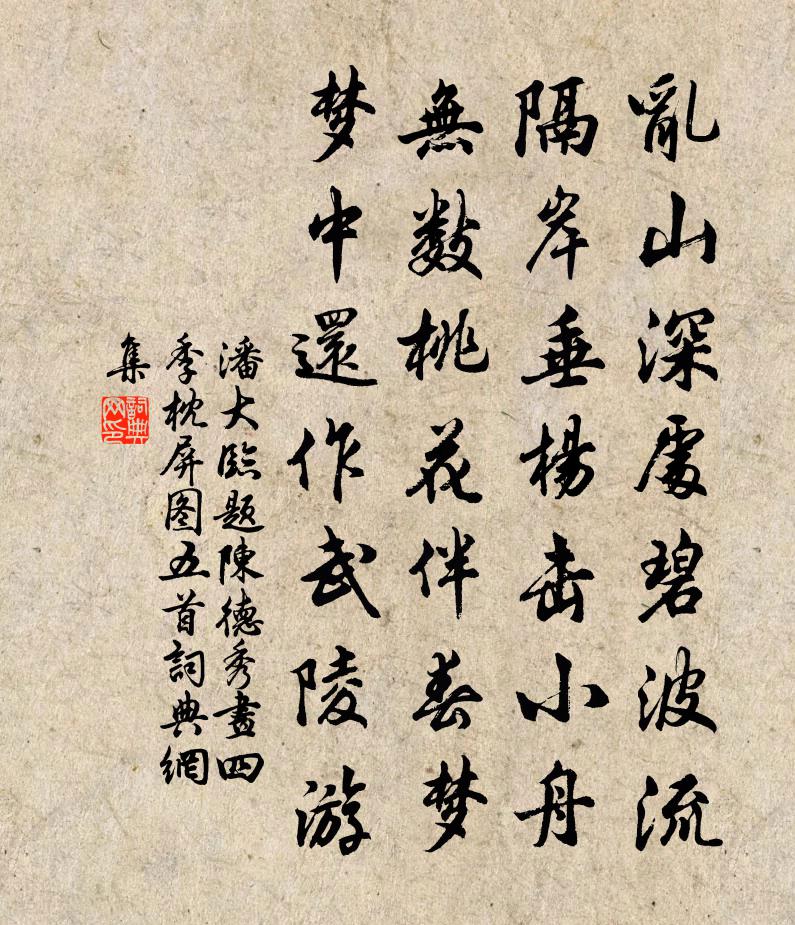 亂山深處碧波流
隔岸垂楊击小舟
無數桃花伴春梦
梦中還作武陵游
潘大臨題陳德秀畫四
季枕屏图五首詞典網
集
詞典
网印